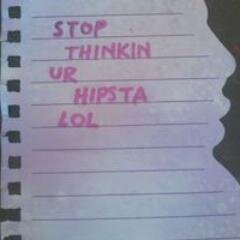 STOP
THINKIN
UR
HIPSTA
LOL